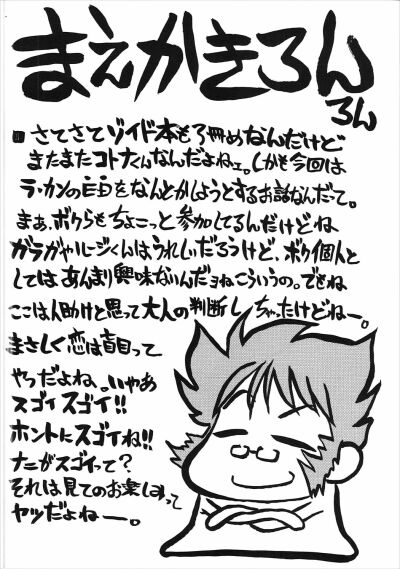 まえかきろん
ろん
さてさてゾイド本も3冊めなんだけど
またまたコトナくんなんだよねェ。しかも今回は
ラ・カンの をなんとかしようとするお話なんだって。
まぁ、ボクらもちょこっと参加してるんだけどね
ガラガやルージくんはうれしいだろうけど、ボク個人と
してはあんまり興味ないんだョねこういうの。でもね
ここは人助けと思って大人の判断しちゃったけどねー。
まさしく恋は盲目って
やつだよね。いやあ
スゴイスゴイ!!
ホントにスゴイね!!
ナニがスゴイって?
それは見てのお楽しみって
ヤツだよねー。